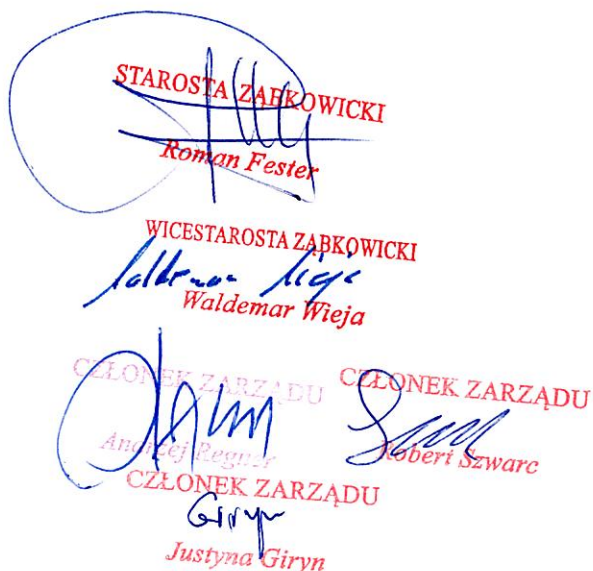 STAROSTA ZĄBKOWICKI
Roman Fester
WICESTAROSTA ZĄBKOWICKI
Waldemar Wieja
Waldemar Wieja
CZŁONEK ZARZĄDU
Andrzej Regner
CZŁONEK ZARZĄDU
Robert Szwarc
CZŁONEK ZARZĄDU
Giryn
Justyna Giryn